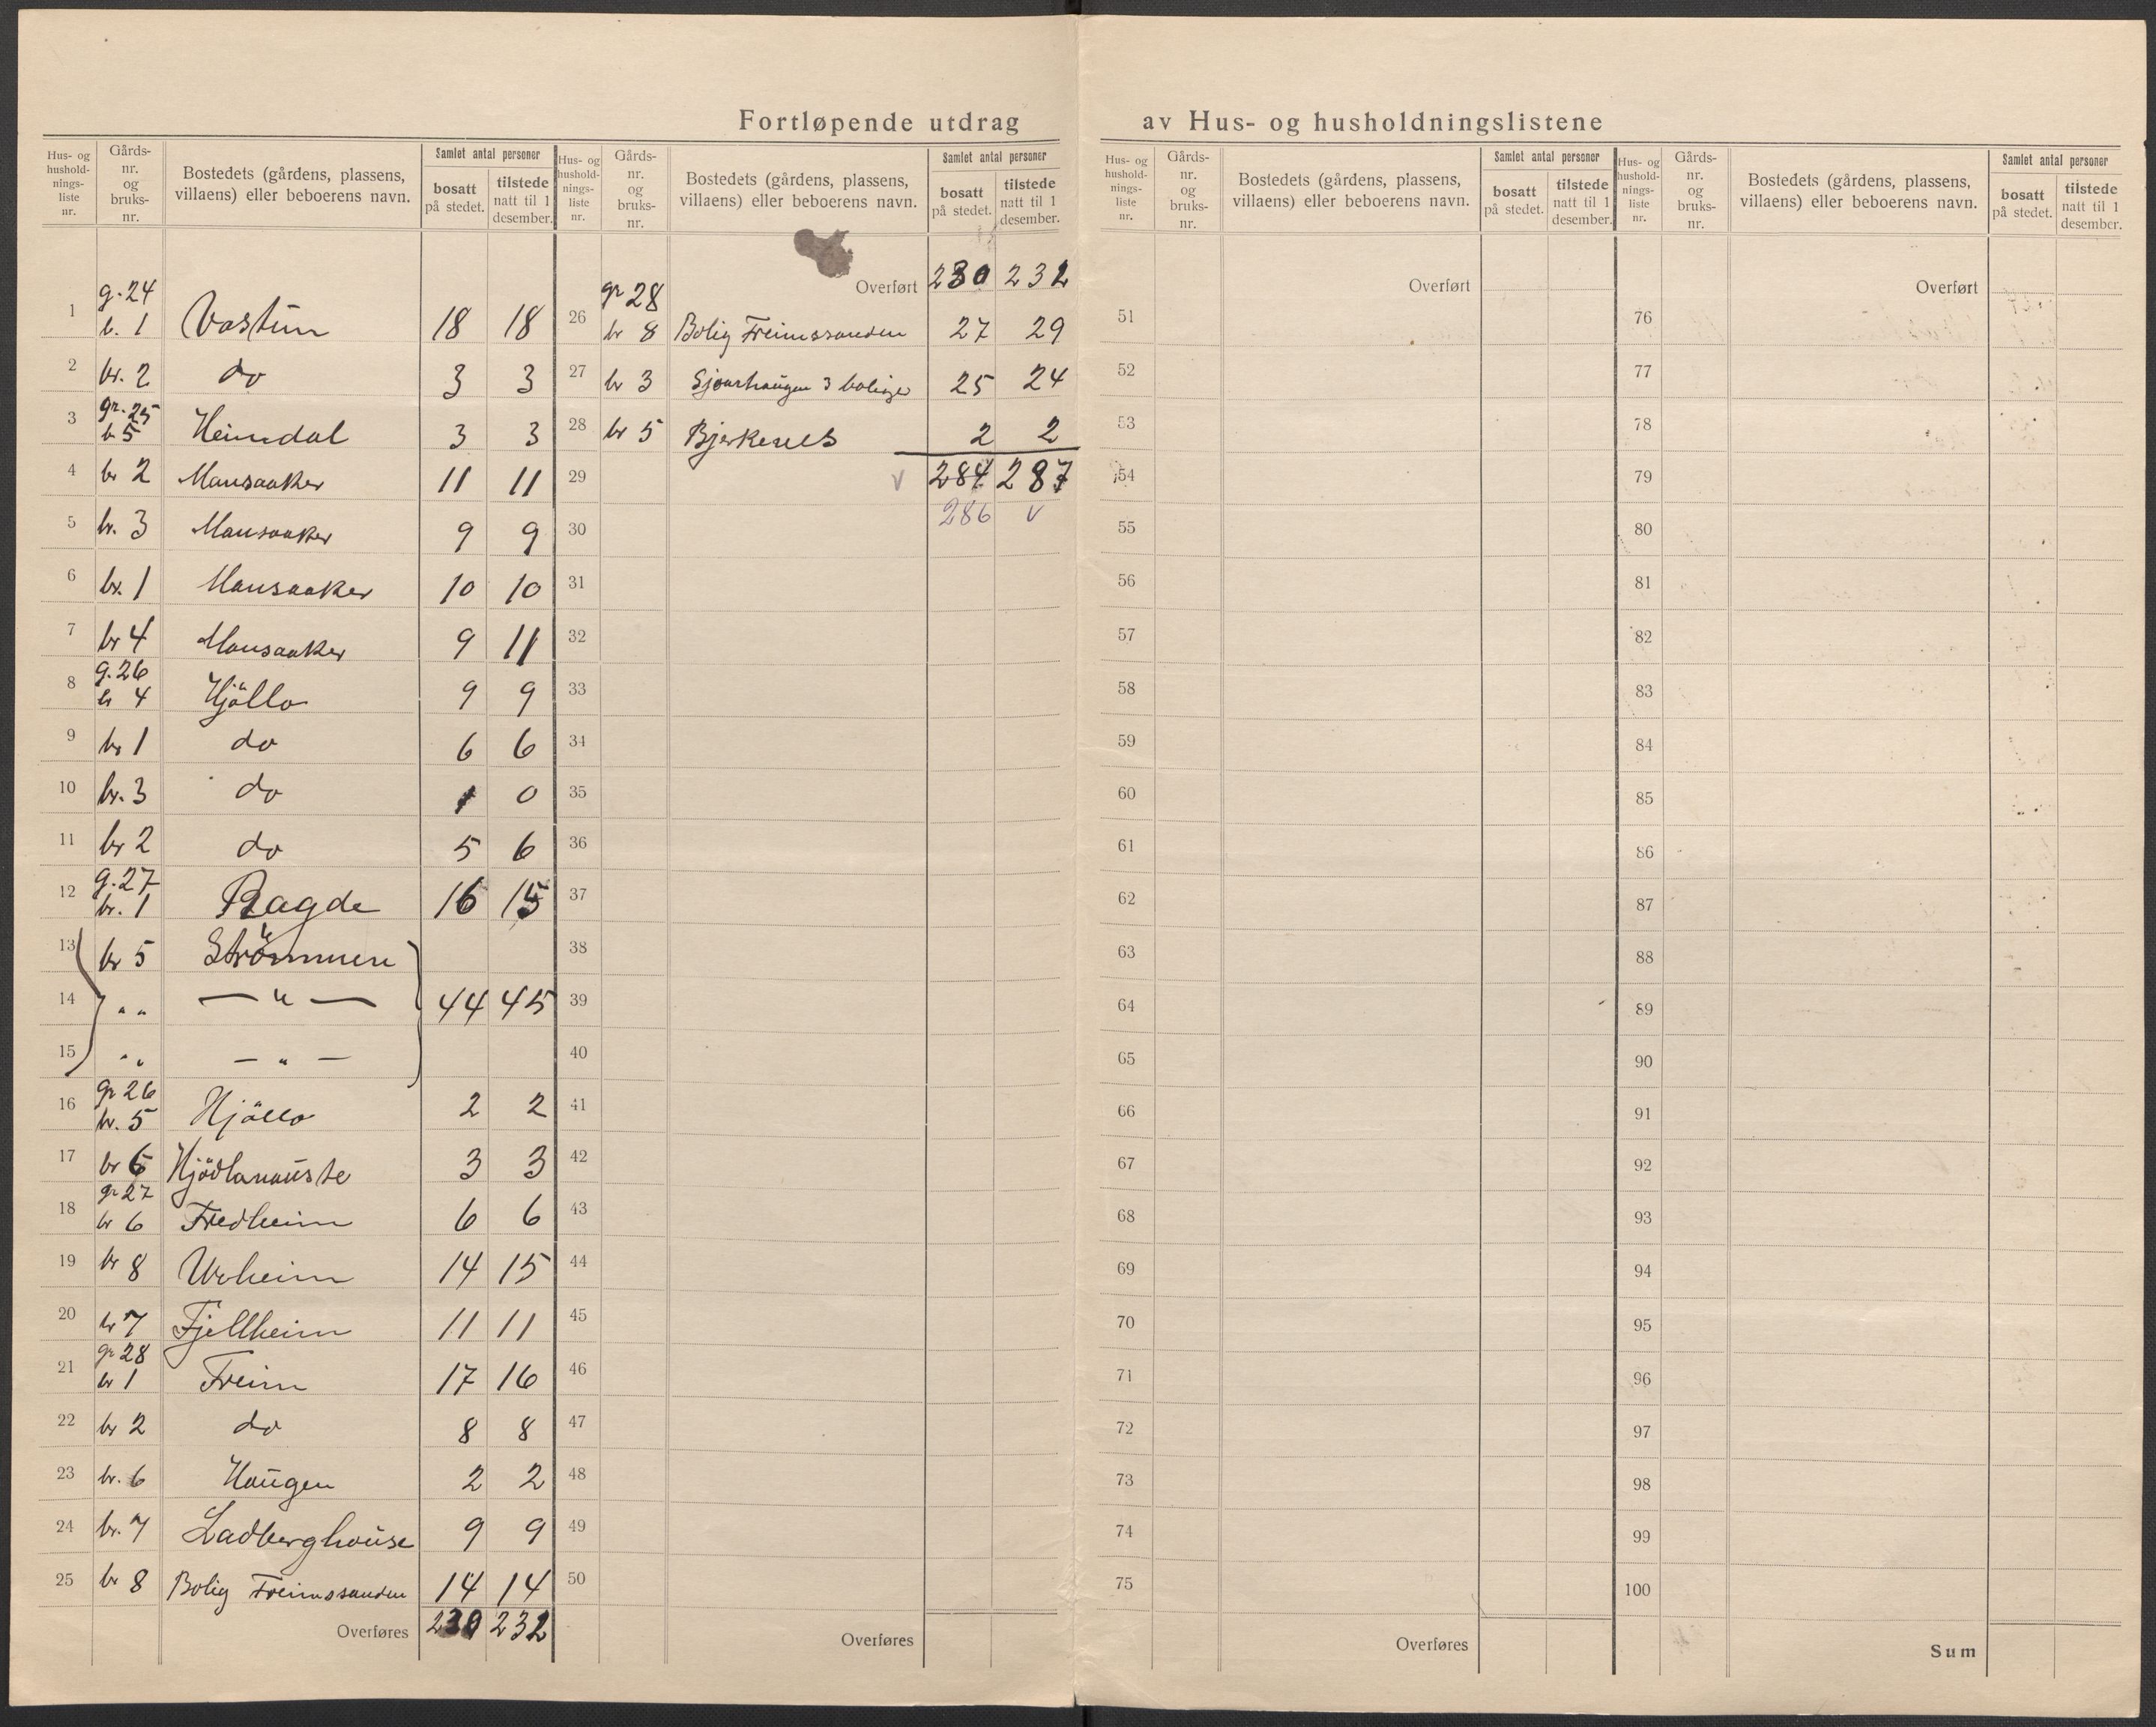 Fortløpende utdrag av Hus- og husholdningslistene
Hus- og hushold-nings-liste nr. Gårds-nr. og bruks-nr. Bostedets (gårdens, plassens, villaens) eller beboerens navn. Samlet antal personer bosatt på stedet. tilstede natt til 1 desember.
1 g. 24 b. 1 Vastun 18 18
2 br. 2 do 3 3
3 gr. 25 b 5 Heimdal 3 3
4 br 2 Mansaaker 11 11
5 br. 3 Mansaaker 9 9
6 br. 1 Mansaaker 10 10
7 br 4 Mansaaker 9 11
8 g. 26 br 4 Hjöllo 9 9
9 br 1 do 6 6
10 br. 3 do 1 0
11 br 2 do 5 6
12 g. 27 br. 1 Ragde 16 15
13 br 5 Strömmen
14 " " — " — 44 45
15 " " — " —
16 gr 26 br. 5 Hjöllo 2 2
17 br 6 Hjödlanauste 3 3
18 gr 27 br 6 Fredheim 6 6
19 br 8 Urheim 14 15
20 br 7 Fjellheim 11 11
21 gr 28 br 1 Freim 17 16
22 br 2 do 8 8
23 br. 6 Haugen 2 2
24 br. 7 Ladberghouse 9 9
25 br 8 Bolig Freimssanden 14 14
Overføres 230 232
Hus- og hushold-nings-liste nr. Gårds-nr. og bruks-nr. Bostedets (gårdens, plassens, villaens) eller beboerens navn. Samlet antal personer bosatt på stedet. tilstede natt til 1 desember.
Overført 230 232
26 gr 28 br 8 Bolig Freimssanden 27 29
27 br 3 3 boliger 25 24
28 br 5 Bjerkenes 2 2
29 v 284 287
30 286 v
31
32
33
34
35
36
37
38
39
40
41
42
43
44
45
46
47
48
49
50
Overføres
Hus- og hushold-nings-liste nr. Gårds-nr. og bruks-nr. Bostedets (gårdens, plassens, villaens) eller beboerens navn. Samlet antal personer bosatt på stedet. tilstede natt til 1 desember.
Overført
51
52
53
54
55
56
57
58
59
60
61
62
63
64
65
66
67
68
69
70
71
72
73
74
75
Overføres
Hus- og hushold-nings-liste nr. Gårds-nr. og bruks-nr. Bostedets (gårdens, plassens, villaens) eller beboerens navn. Samlet antal personer bosatt på stedet. tilstede natt til 1 desember.
Overført
76
77
78
79
80
81
82
83
84
85
86
87
88
89
90
91
92
93
94
95
96
97
98
99
100
Sum